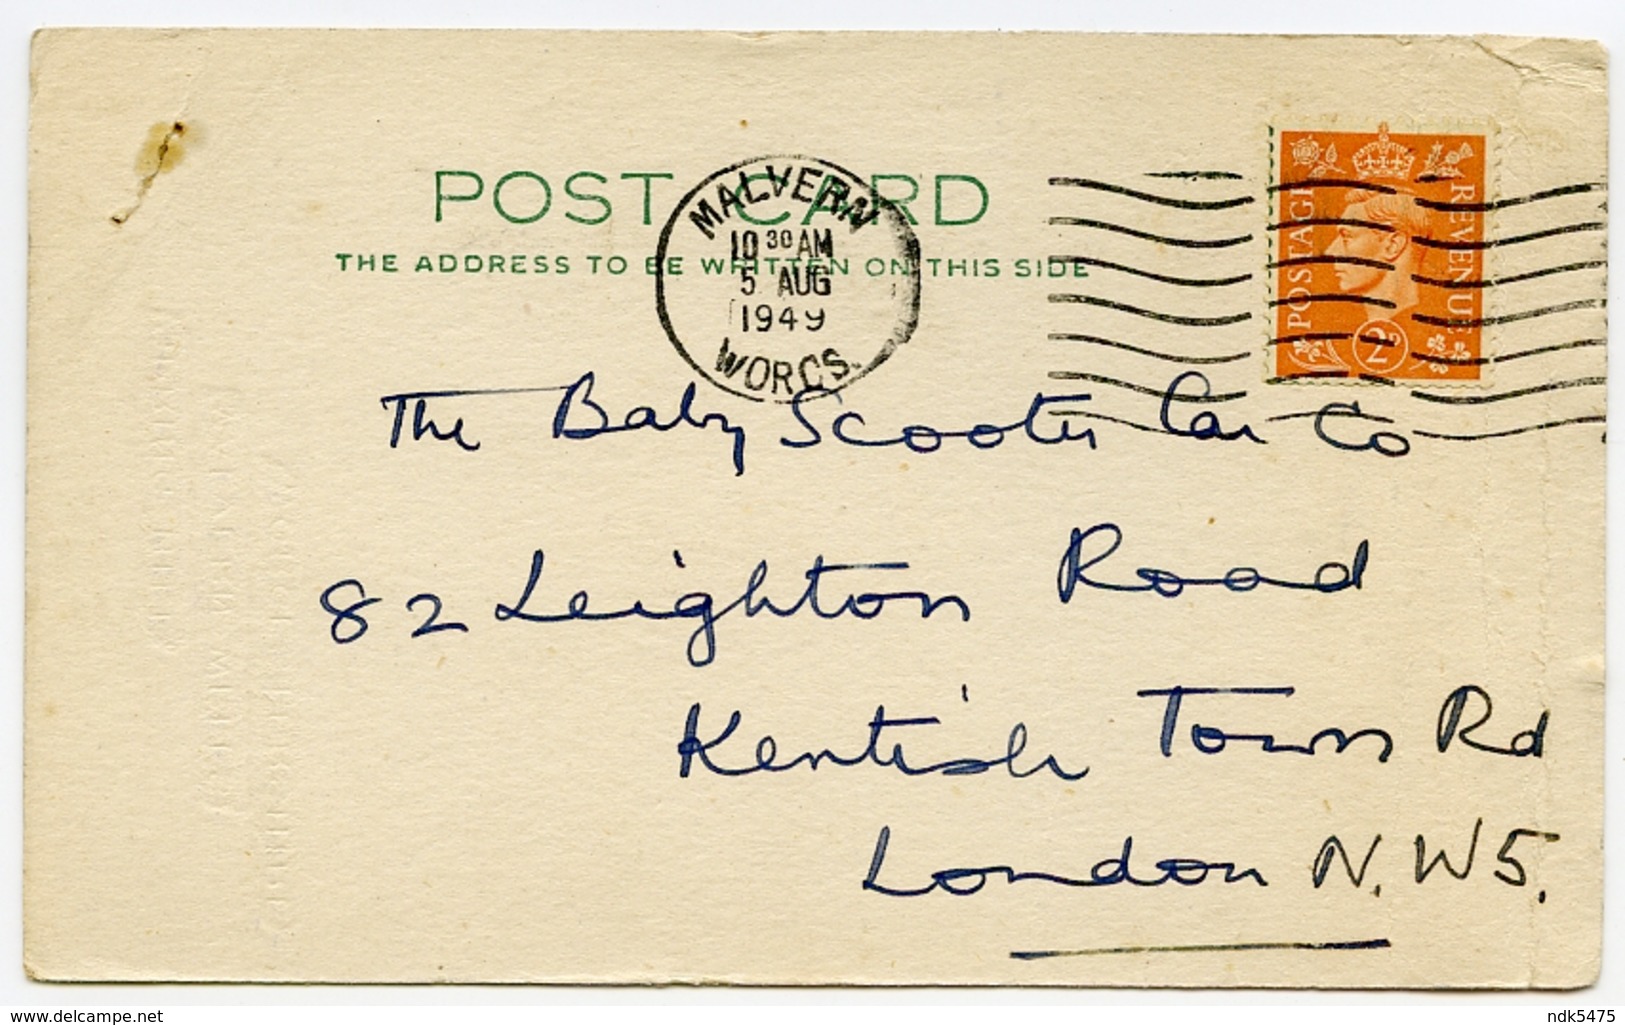 POST CARD
THE ADDRESS TO BE WRITTEN ON THIS SIDE
MALVERN
10 30 AM
5 AUG
1949
WORCS.
POSTAGE
REVENUE
2D
The Baby Scooter Car Co
82 Leighton Road
Kentish Town Rd
London N.W5.
www.delcampe.net
ndk5475